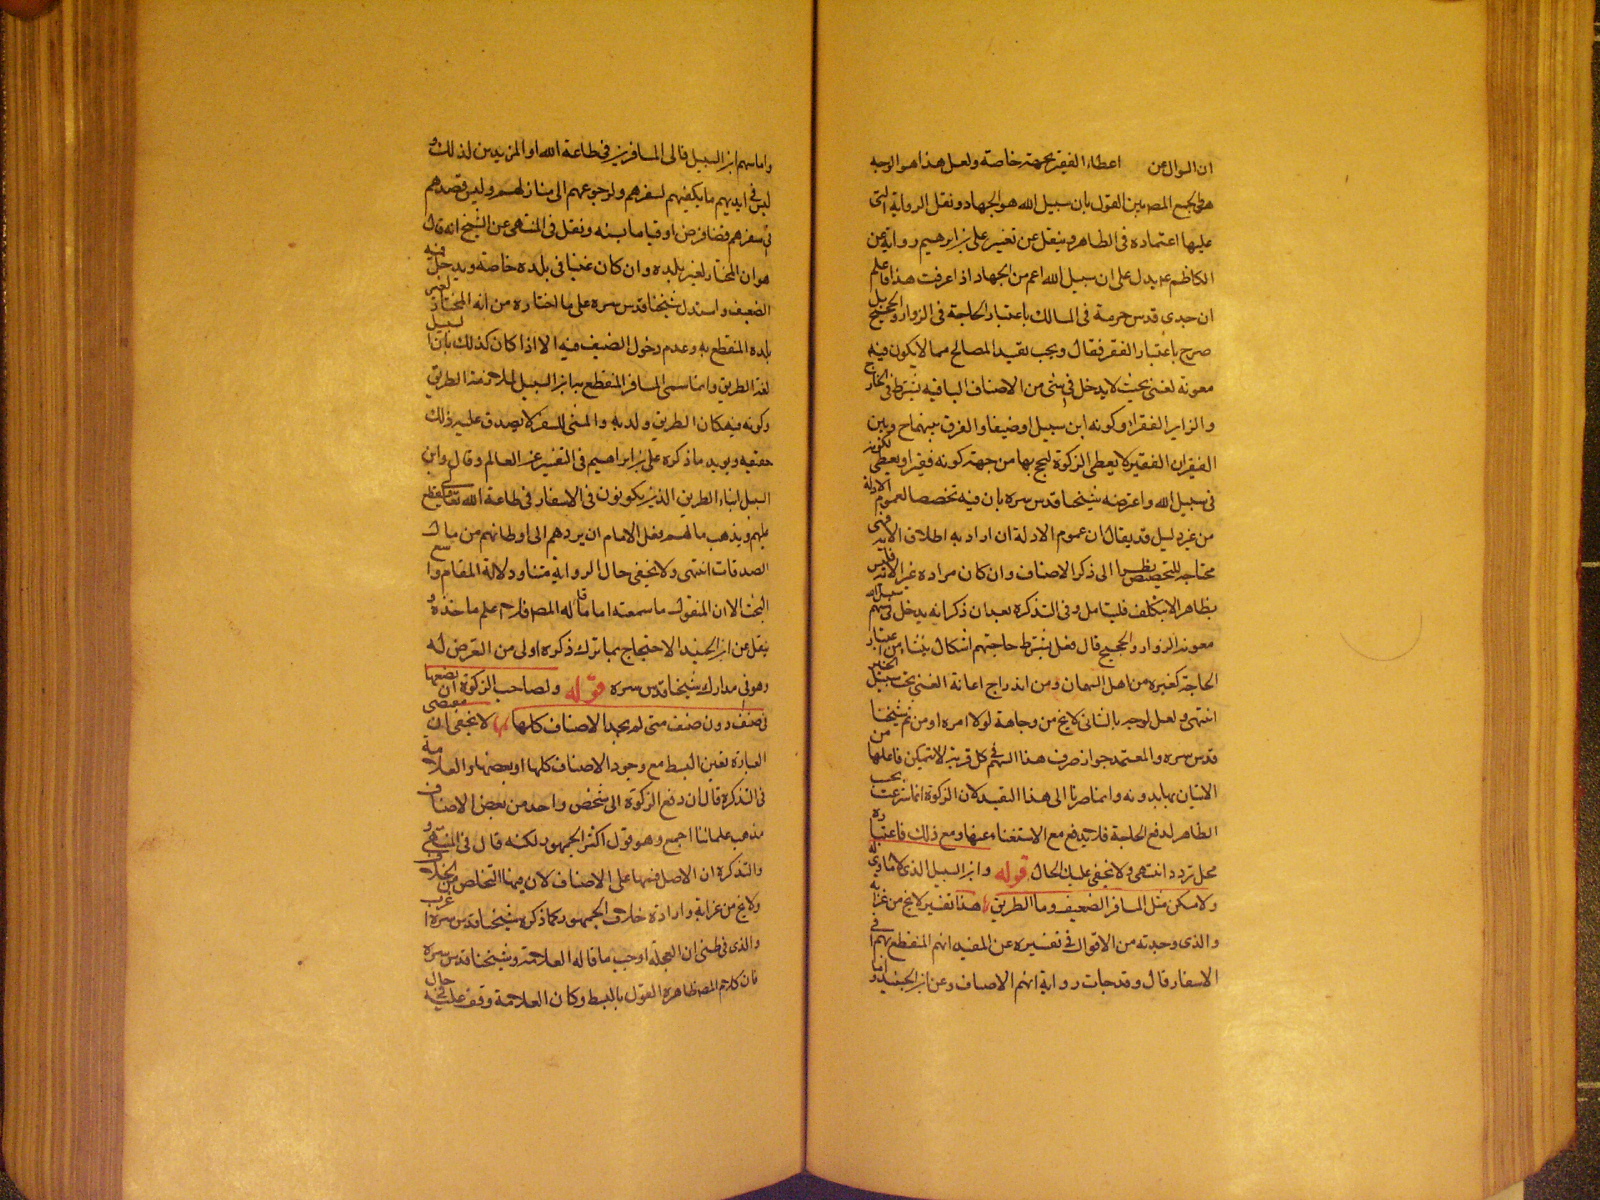 ان السوال عن اعطاء الفقير بجهة خاصة ولعل هذا هو الوجه
في جمع المص بين القول بان سبيل الله هو الجهاد ونقل الرواية التى
عليها اعتماده فى الظاهر وينقل عن تفسير على بن ابرهيم رواية عن
الكاظم ع يدل على ان سبيل الله اعم من الجهاد اذا عرفت هذا فاعلم
ان جدى قدس حرمة فى المسالك باعتبار الحاجة فى الزوار والحجيج بل
صرح باعتبار الفقر فقال ويجب تقييد المصالح مما لا يكون فيه
معونة لغنى بحيث لا يدخل فى شى من الاصناف الباقيه فيشترط فى الحاج
والزاير الفقر او كونه ابن سبيل او ضيفا والفرق بينهما ح وبين
الفقير ان الفقير لا يعطى الزكوة ليحج بها من جهة كونه فقيرا ويعطى لكونه
فى سبيل الله واعترضه شيخنا قدس سره بان فيه تخصصا لعموم الادلة
من غير دليل قد يقال ان عموم الادلة ان اراد به اطلاق الاية فهى
محتاجة للتخصيص نظرا الى ذكر الاصناف وان كان مراده غير الاية فليس
بظاهر الا بتكلف فليتامل وفى التذكرة بعد ان ذكر انه يدخل فى سهم سبيل الله
معونة الزوار والحجيج قال فهل يشترط حاجتهم اشكال ينشاء من اعتبار
الحاجة كغيره من اهل السهمان ومن اندراج اعانة الغنى تحت سبيل الخير
انتهى ولعل لوجه بالثانى لا يخ من وجاهة لولا امره او من ثم شيخنا
قدس سره والمعتمد جواز صرف هذا السهم فى كل قربة لا يتمكن فاعلها من
الاتيان بها بدونه وانما صرنا الى هذا التقييد لان الزكوة انما شرعت بحسب
الظاهر لدفع الحاجة فلا تدفع مع الاستغناء عنها ومع ذلك فاعتباره
محل تردد انتهى ولا يخفى عليك الحال قوله وابن السبيل الذى لا مادى له
ولا سكن مثل المسافر الضعيف وما الطريق هذا تفسير لا يخ من غرابه
والذى وجدته من الاقوال فى تفسيره عن المفيد انهم المنقطع بهم فى
الاسفار قال وقد جات رواية انهم الاضياف وعن ابن الجنيد واما
واما سهم ابن السبيل فالى المسافرين فى طاعة الله او المريدين لذلك و
ليس فى ايديهم ما يكفيهم لسفرهم ولرجوعهم الى منازلهم وليس قصدهم
فى سفرهم قضا فرض او قياما بسنه ونقل فى المنتهى عن الشيخ انه قال
هو ان المجتاز لغير بلده وان كان غنيا فى بلده خاصة ويدخل فيه
الضعيف واستدل شيخنا قدس سره على ما اختاره من انه المجتاز لغير
بلده المنقطع به وعدم دخول الضيف فيه الا اذا كان كذلك بان السبيل
لغة الطريق وانما سمى المسافر المنقطع بابن السبيل لملازمته الطريق
وكونه فيه فكان الطريق ولد به والمنشى للسفر لا يصدق عليه ذلك
حقيقة ويويده ما ذكره على بن ابراهيم فى التفسير عن العالم وقال وابن
السبيل ابناء الطريق الذين يكونون فى الاسفار فى طاعة الله تعالى فيقطع
عليهم ويذهب ما لهم فعلى الامام ان يردهم الى اوطانهم من مال
الصدقات انتهى ولا يخفى حال الرواية متنا ودلالة المقام واسع
البحث الا ان المنقول ما سمعته اما ما قاله المص فلم اعلم ماخذه و
ينقل عن ابن الجنيد الاحتجاج بما ترك ذكره اولى من التعرض له
وهو فى مدارك شيخنا قدس سره قوله ولصاحب الزكوة ان يضعها
فى صنف دون صنف متى لم يجد الاصناف كلها لا يخفى ان مقتضى
العبارة تعين البسط مع وجود الاصناف كلها او بعضها والعلامة
فى التذكرة قال ان دفع الزكوة الى شخص واحد من بعض الاصناف
مذهب علمائنا اجمع وهو قول اكثر الجمهور لكنه قال فى المنتهى و
والتذكرة ان الاصل فيها على الاصناف لان فيها التخلص من الخلاف
ولا يخ من غرابة وارادة خلاف الجمهور كما ذكره شيخنا قدس سره اغرب
والذى فى ظنى ان العجلة اوجب ما قاله العلامة وشيخنا قدس سره
فان كلام المص ظاهره القول بالبسط وكان العلامة وقف عليه فى حال